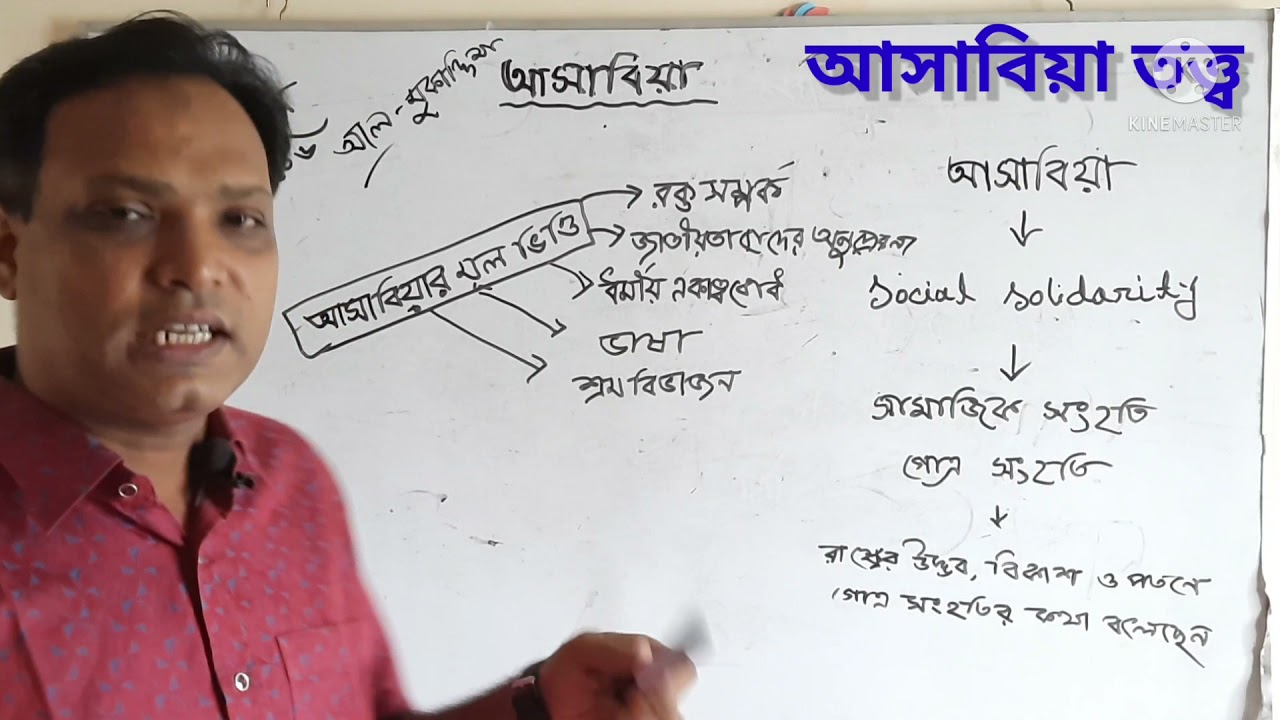 আসাবিয়া তত্ত্ব
KINEMASTER
আসাবিয়া
আল-মুকাদ্দিমা
আসাবিয়ার মূল ভিত্তি
রক্ত সম্পর্ক
জাতীয়তাবাদের অনুপ্রেরণা
ধর্মীয় একাত্মবোধ
ভাষা
শ্রম বিভাজন
আসাবিয়া
Social solidarity
সামাজিক সংহতি
গোত্র সংহতি
রাষ্ট্রের উদ্ভব, বিকাশ ও পতনে
গোত্র সংহতির কথা বলেছেন